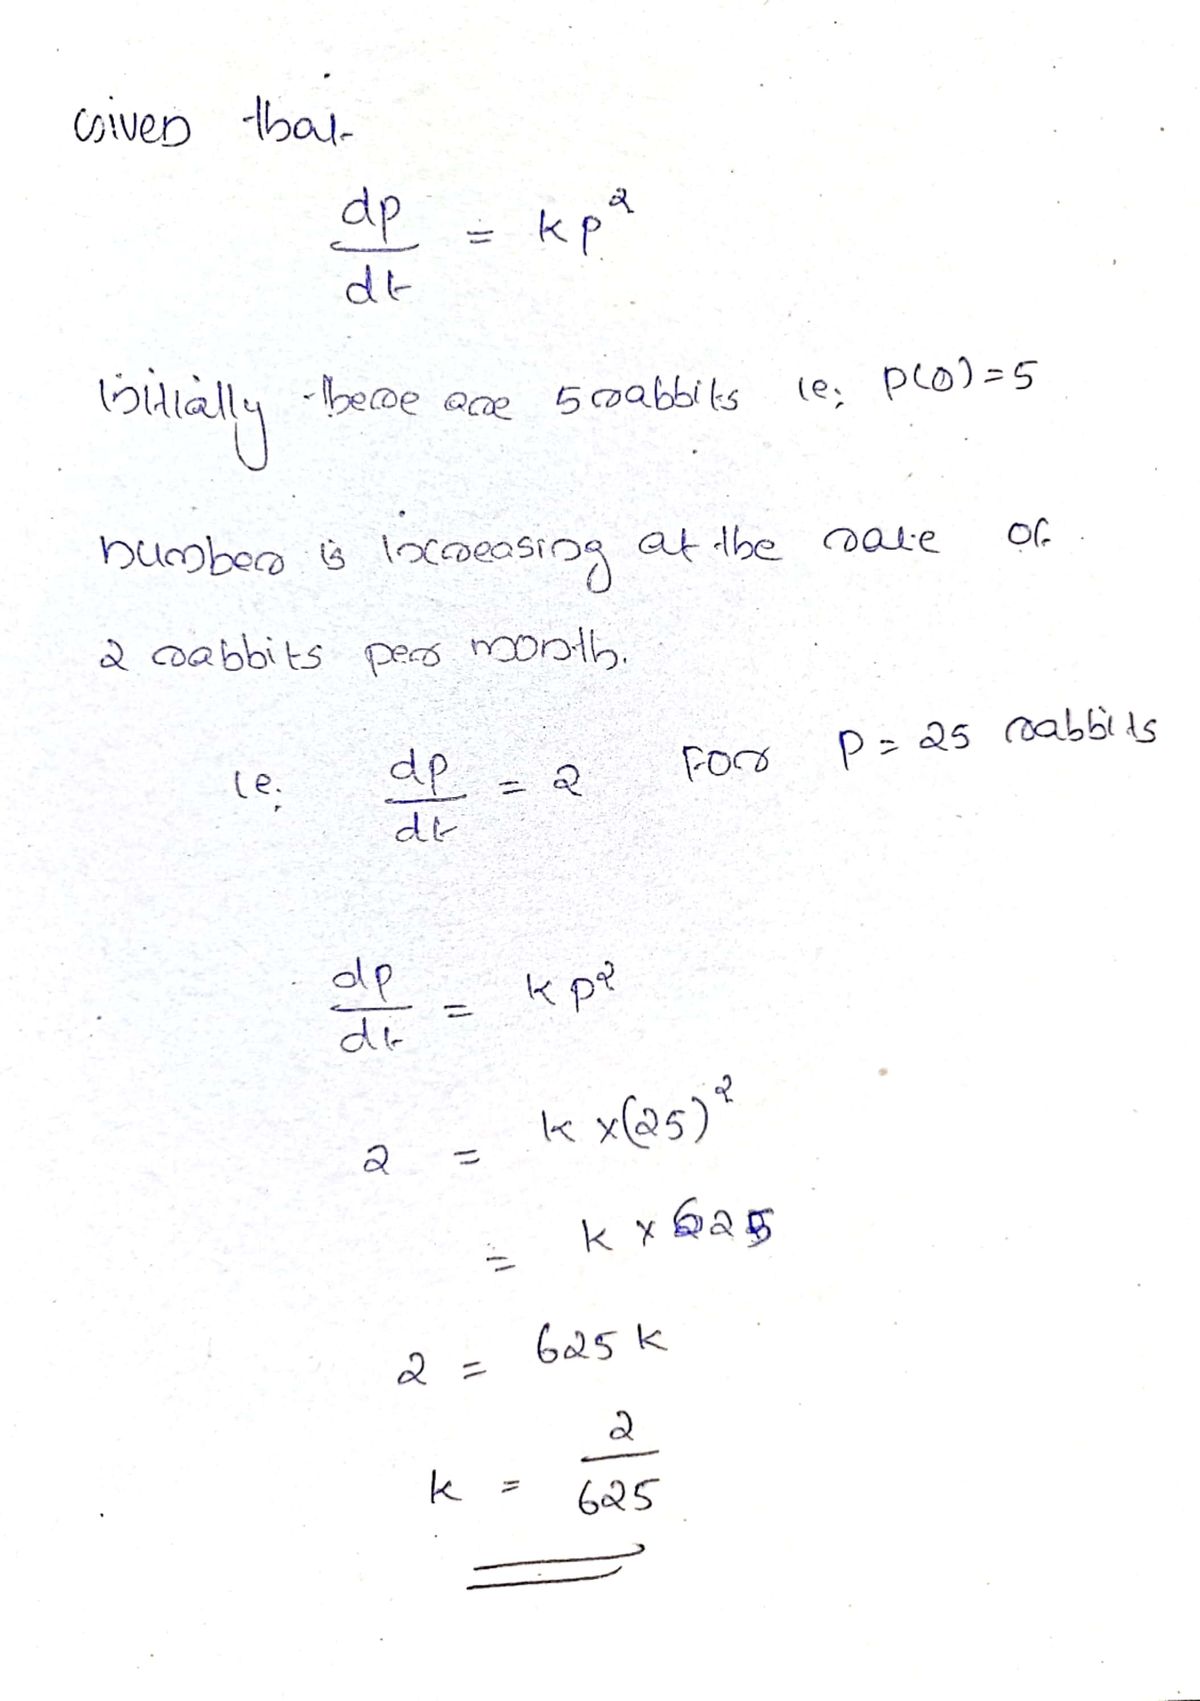 Given that
dp/dt = kp²
initially there are 5 rabbits ie; p(0)=5
number is increasing at the rate of
2 rabbits per month.
ie; dp/dt = 2 For P = 25 rabbits
dp/dt = kp²
2 = k×(25)²
= k × 625
2 = 625 k
k = 2/625